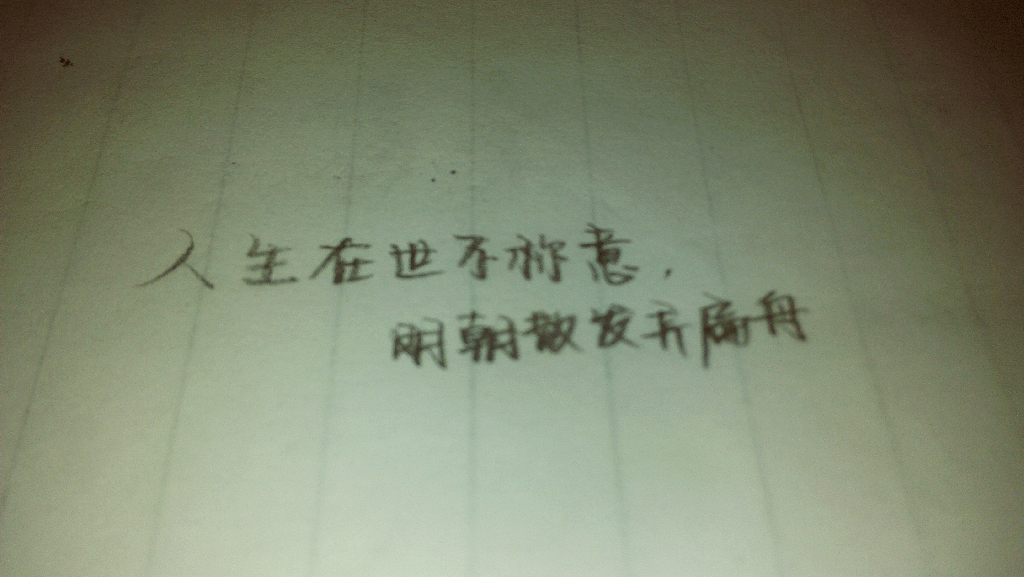 人生在世不称意，
明朝散发弄扁舟